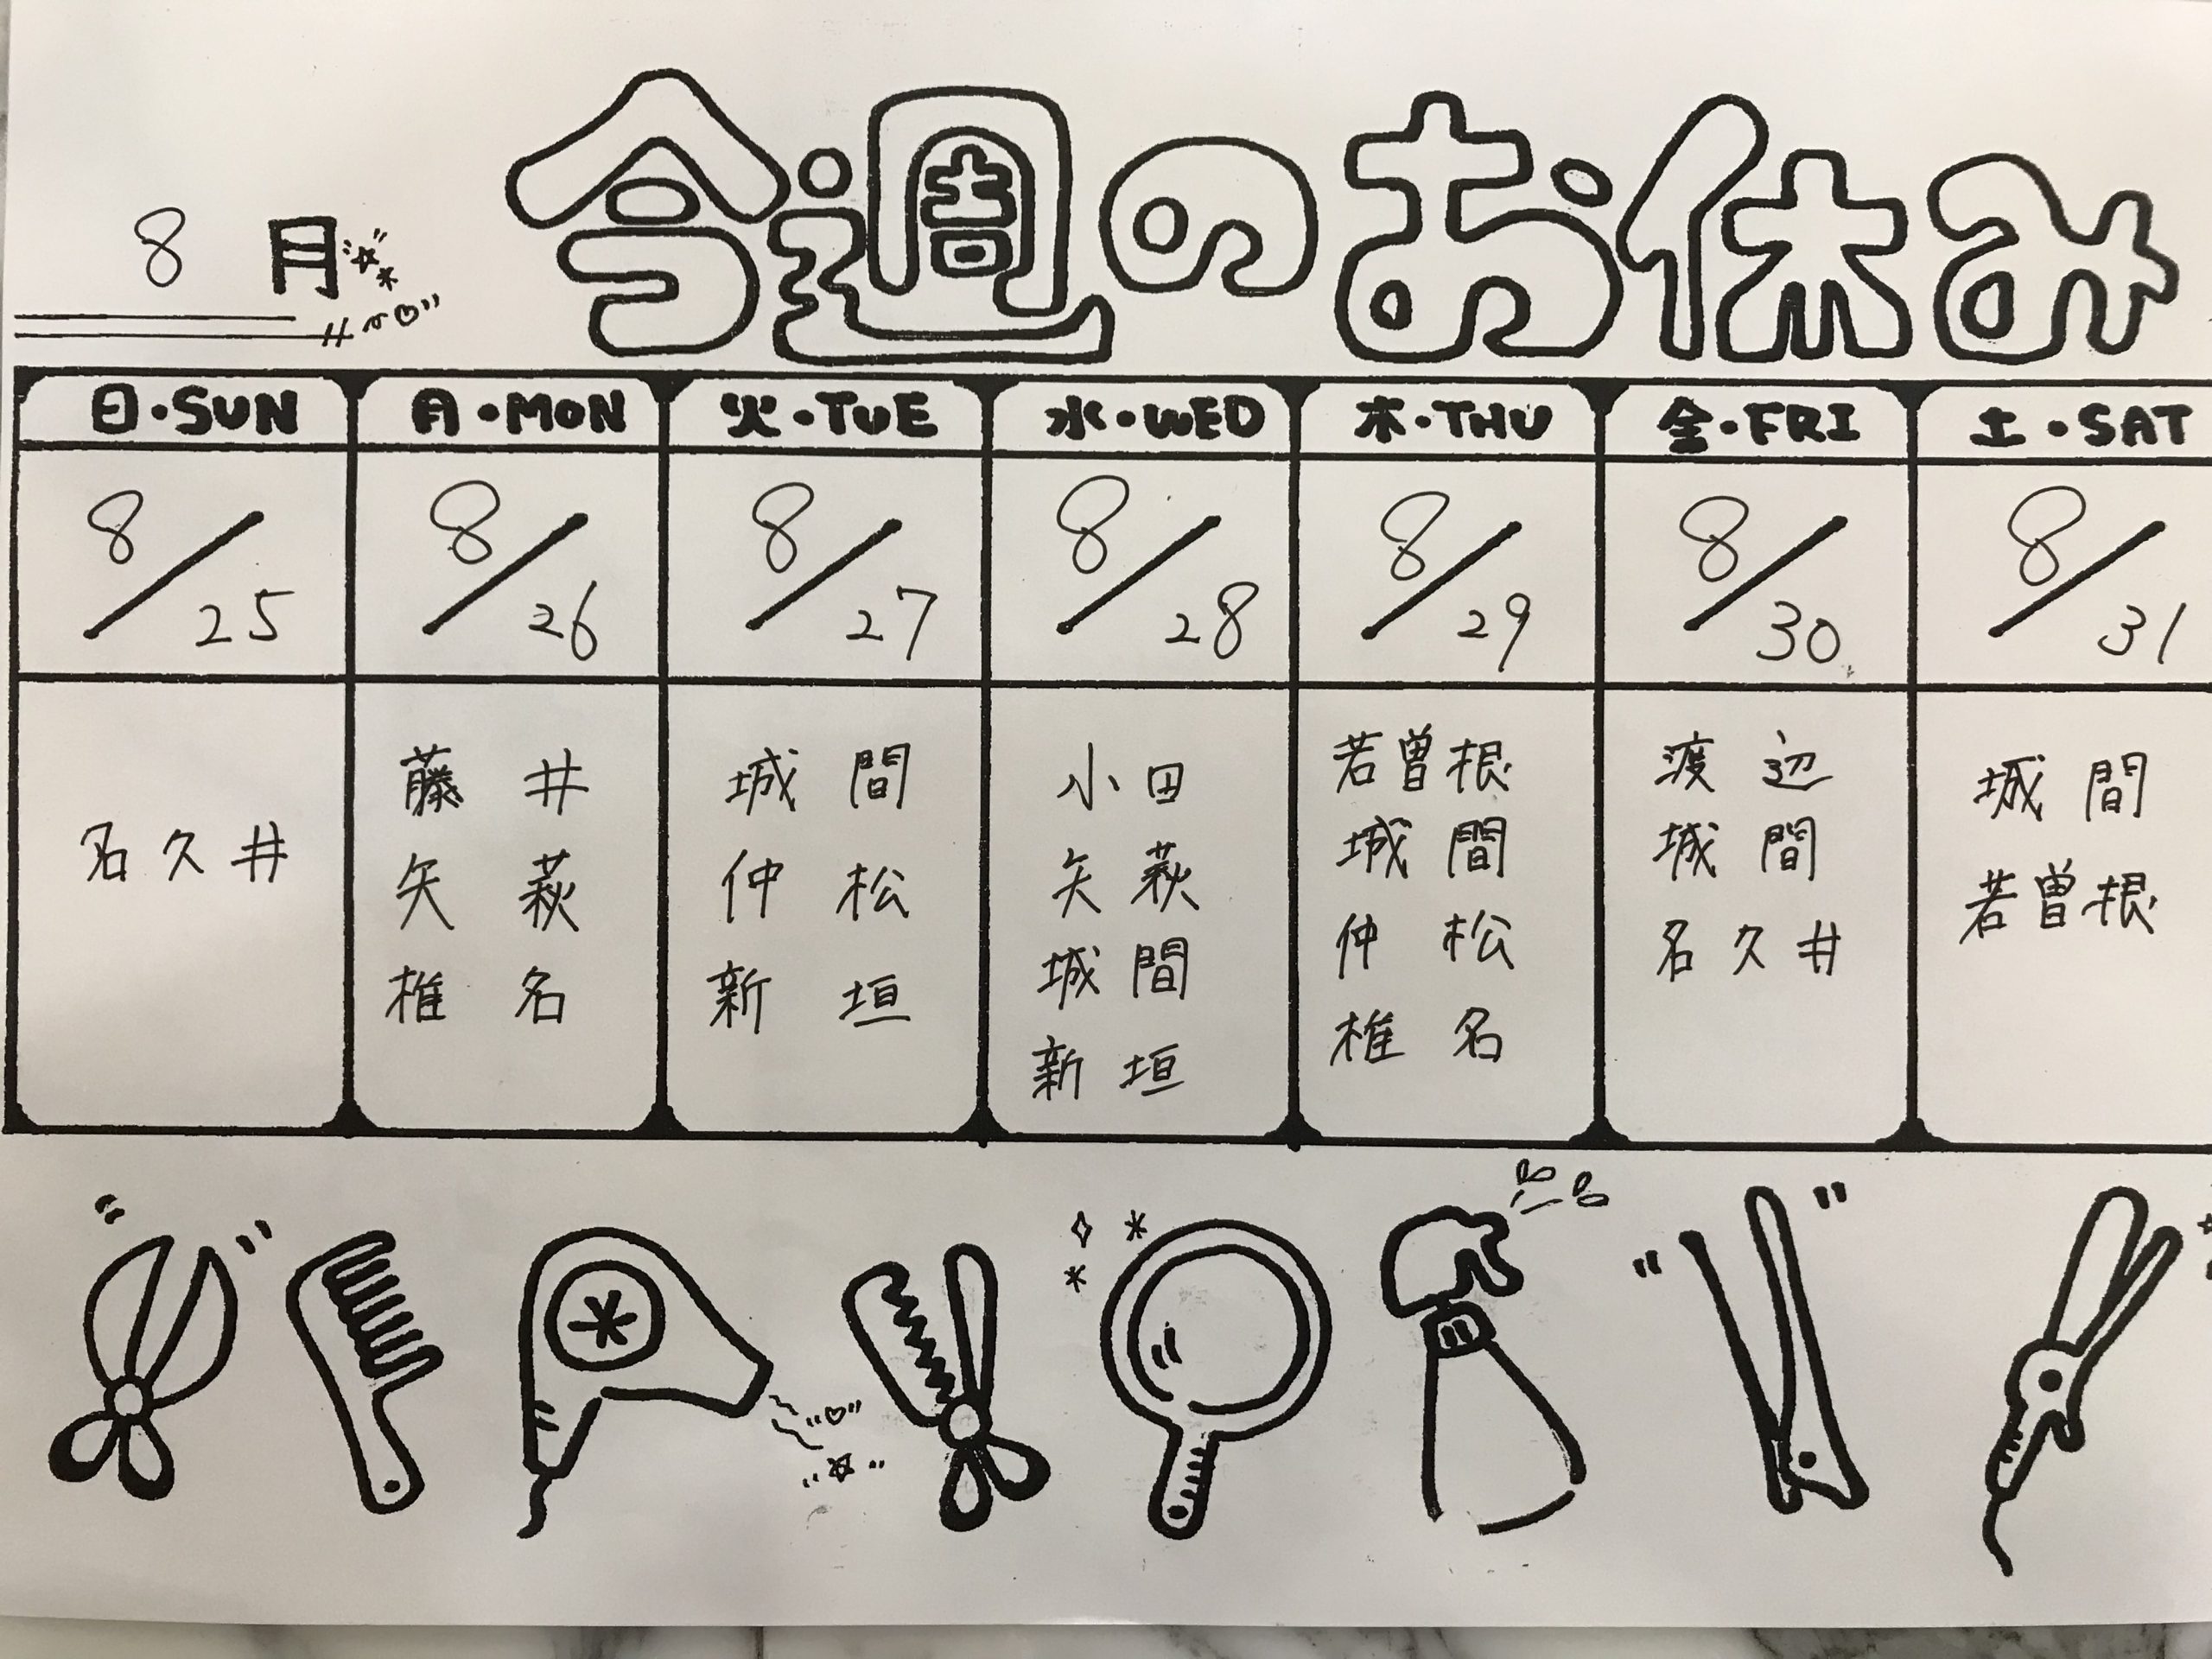 今週のお休み
8月
日・SUN 月・MON 火・TUE 水・WED 木・THU 金・FRI 土・SAT
8/25 8/26 8/27 8/28 8/29 8/30 8/31
名久井
藤井
矢萩
椎名
城間
仲松
新垣
小田
矢萩
城間
新垣
若曽根
城間
仲松
椎名
渡辺
城間
名久井
城間
若曽根